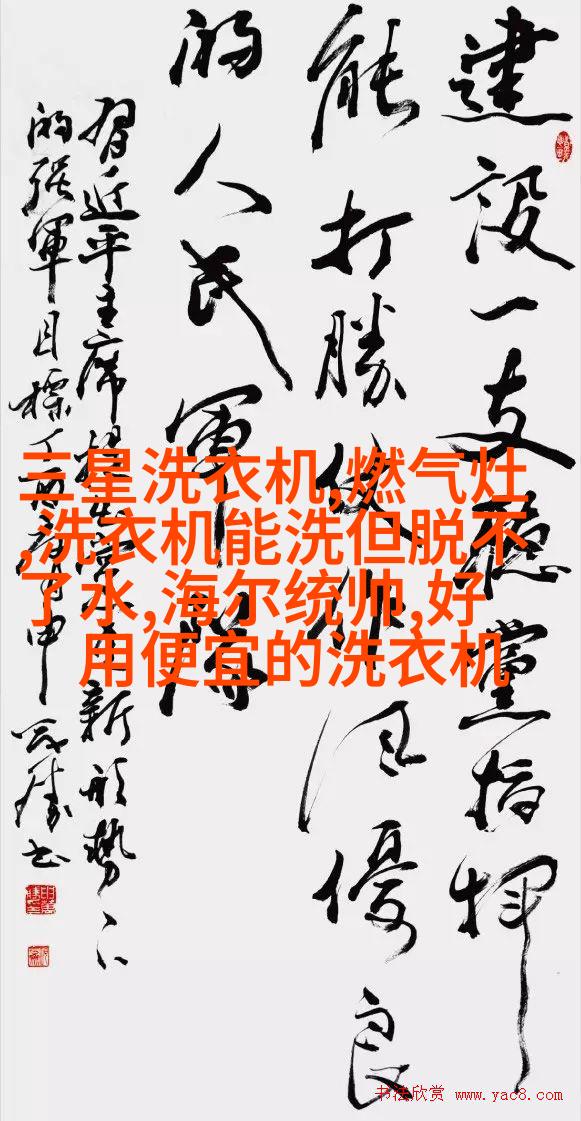 建设一支听党指挥
能打勝仗作风優良
的人民軍隊
习近平主席提出党在新形势下
的强軍目標
三星洗衣机,燃气灶
,洗衣机能洗但脱不
了水,海尔统帅,好
用便宜的洗衣机
书法欣赏 www.yac8.com